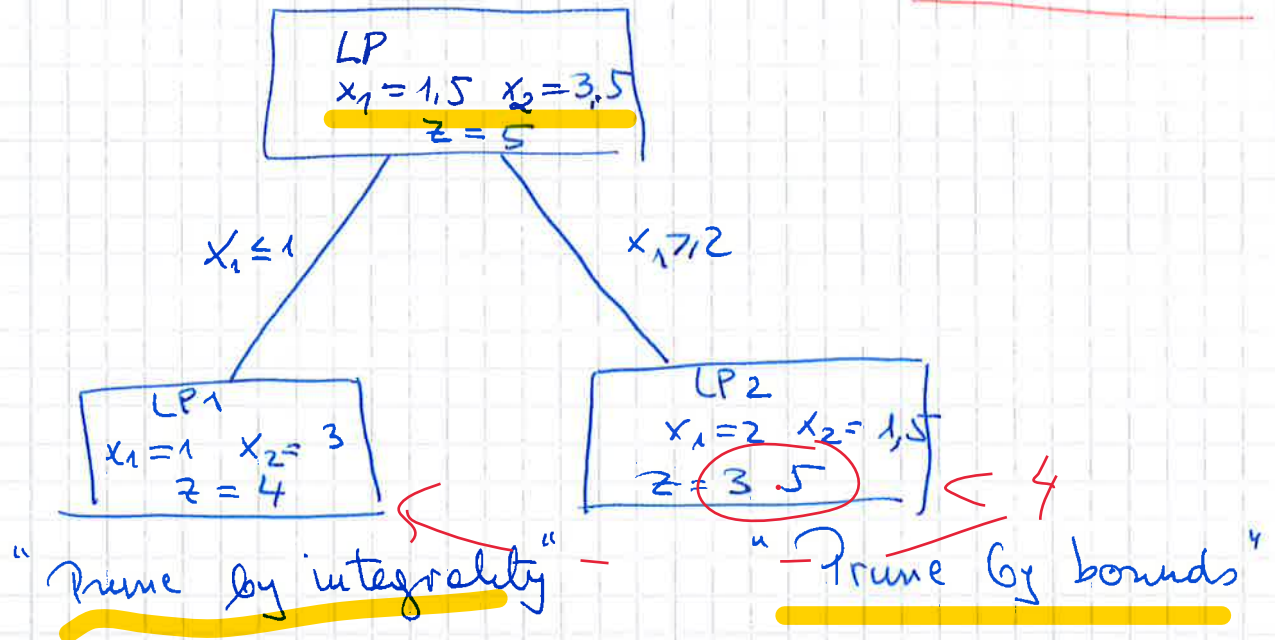 LP
x₁ = 1,5 x₂ = 3,5
z = 5
x₁ ≤ 1
x₁ ≥ 2
LP1
x₁ = 1 x₂ = 3
z = 4
LP2
x₁ = 2 x₂ = 1,5
z = 3.5 < 4
"Prune by integrality"
"Prune by bounds"